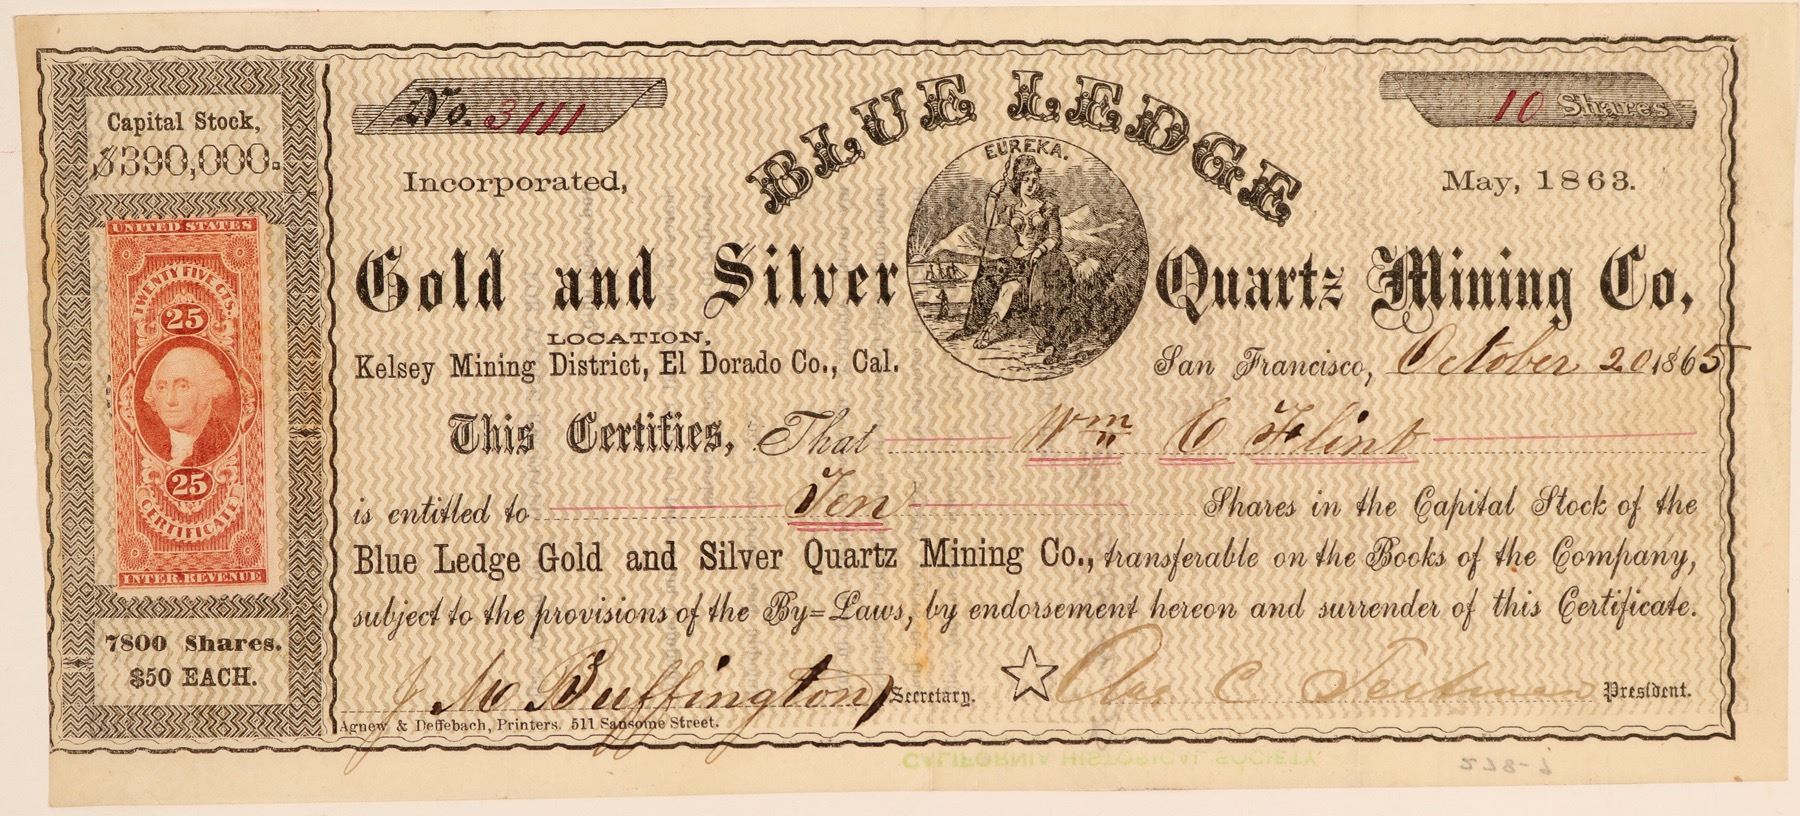 Capital Stock,
$390,000.
UNITED STATES
TWENTY FIVE CTS.
25
25
CERTIFICATE
INTER. REVENUE
7800 Shares.
$50 EACH.
No. 3111
10 Shares
BLUE LEDGE
EUREKA.
Incorporated,
May, 1863.
Gold and Silver Quartz Mining Co,
LOCATION,
Kelsey Mining District, El Dorado Co., Cal.
San Francisco, October 20 1865
This Certifies, That Wm C Flint
is entitled to Ten Shares in the Capital Stock of the
Blue Ledge Gold and Silver Quartz Mining Co., transferable on the Books of the Company,
subject to the provisions of the By=Laws, by endorsement hereon and surrender of this Certificate.
J M Buffington Secretary.
C President.
Agnew & Deffebach, Printers. 511 Sansome Street.
CALIFORNIA HISTORICAL SOCIETY